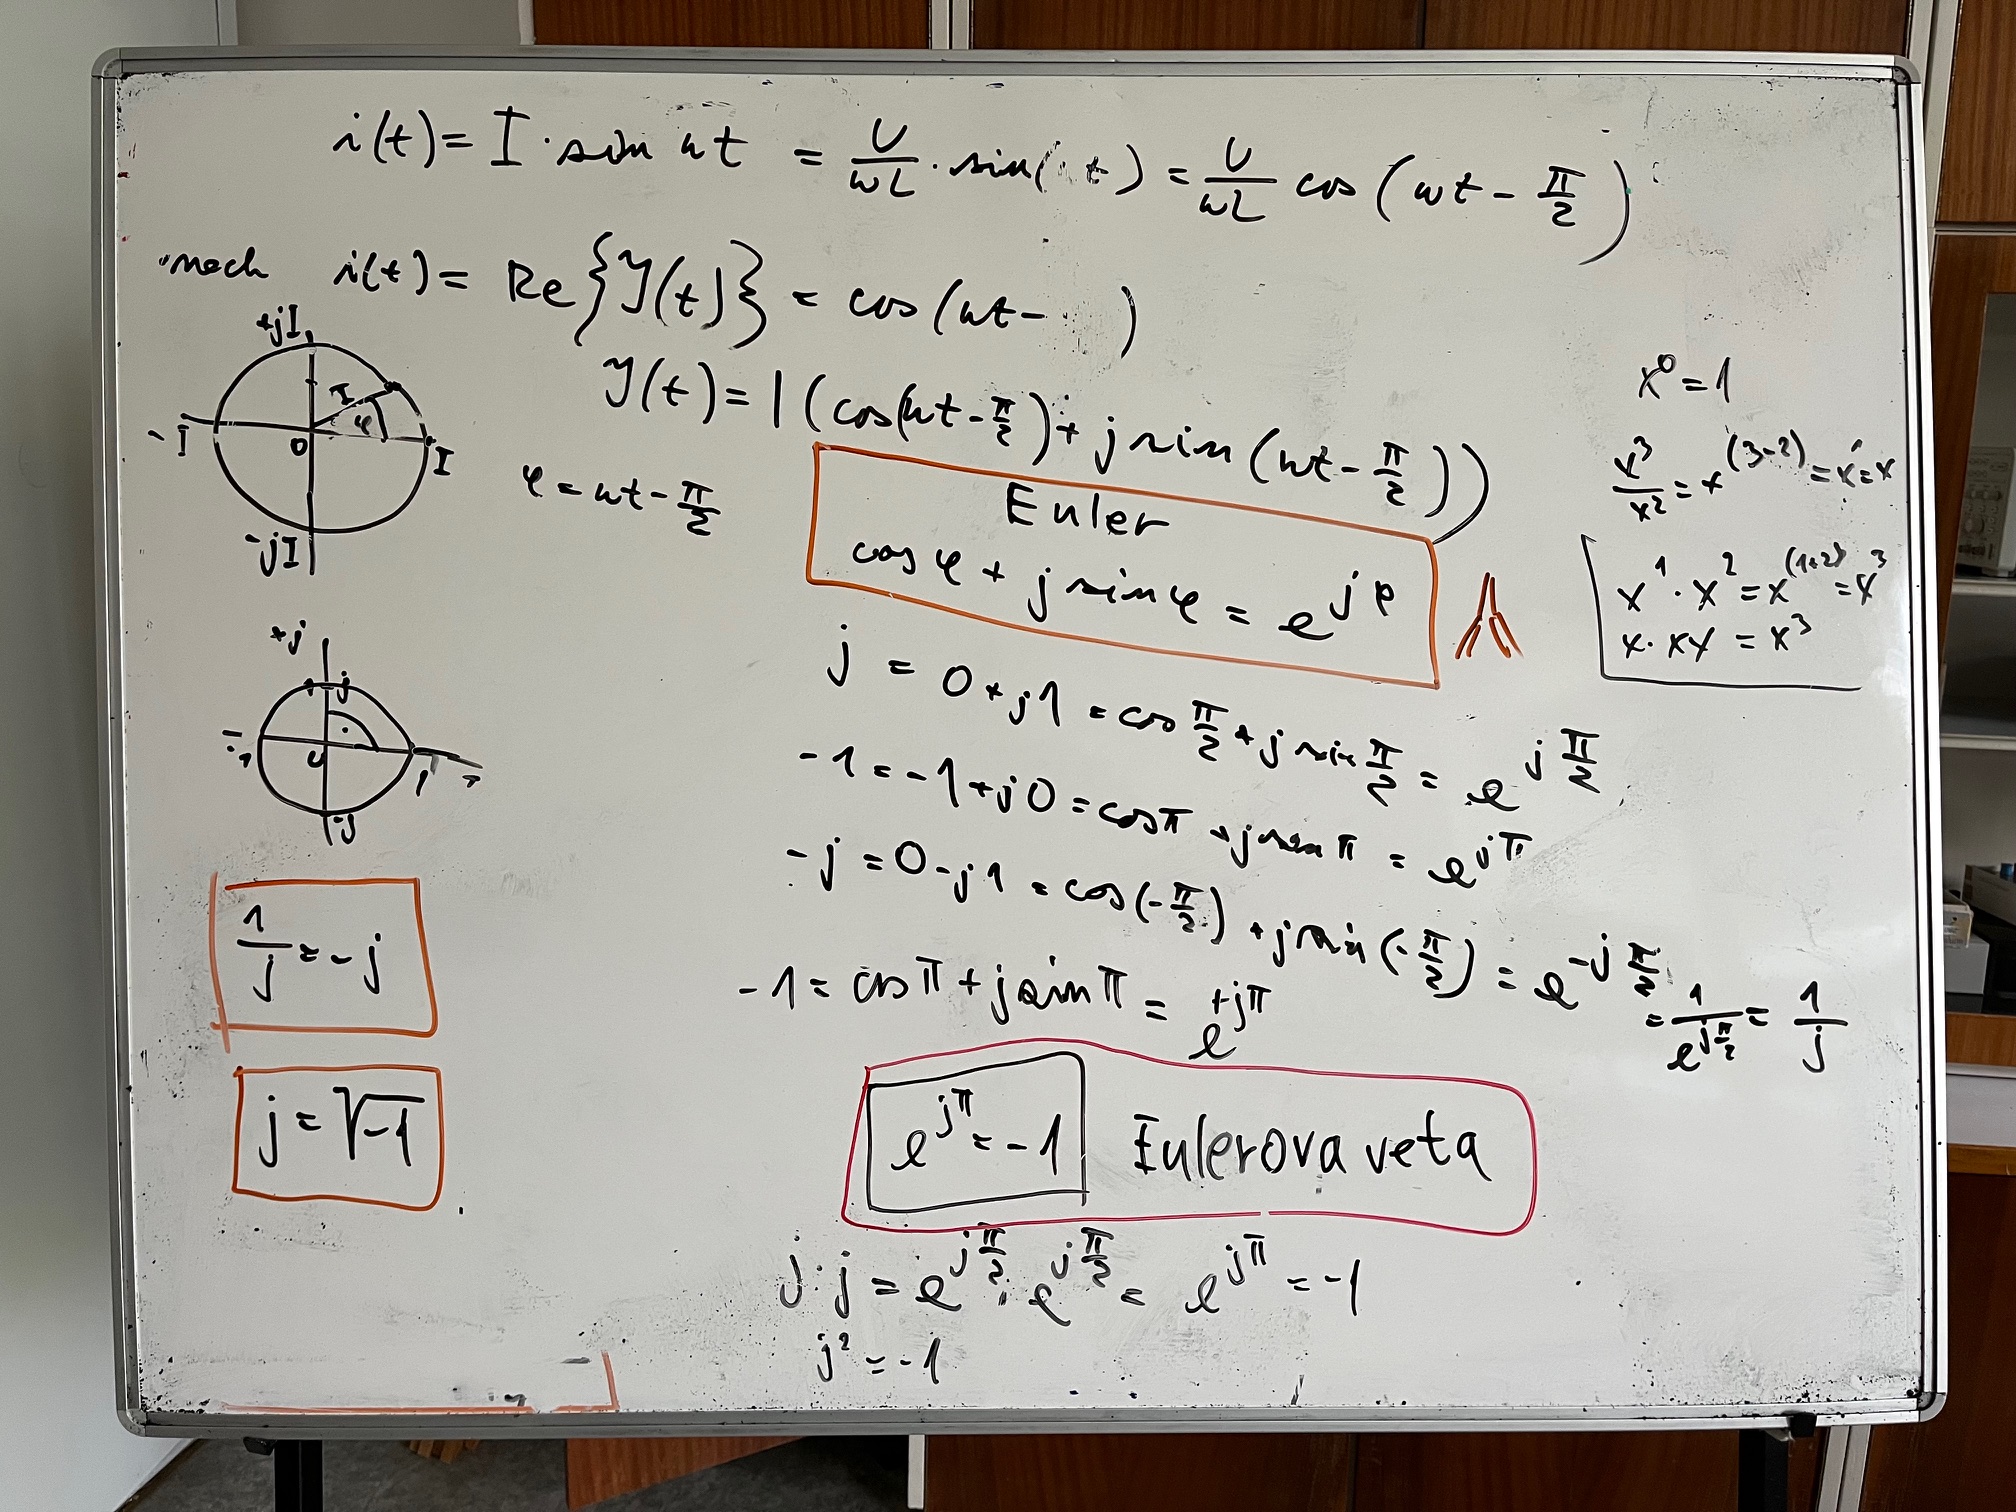 i(t) = I · sin ωt = U/ωL · sin( t) = U/ωL cos (ωt - π/2)
nech i(t) = Re {Y(t)} = cos (ωt - )
Y(t) = I (cos(ωt - π/2) + j sin (ωt - π/2))
+jI
I
φ
-I
0
I
-jI
φ = ωt - π/2
Euler
cos φ + j sin φ = e^jφ
x^0 = 1
x^3/x^2 = x^(3-2) = x^1 = x
x^1 · x^2 = x^(1+2) = x^3
x · xx = x^3
+j
j
-1
0
1
-j
j = 0 + j1 = cos π/2 + j sin π/2 = e^jπ/2
-1 = -1 + j0 = cos π + j sin π = e^jπ
-j = 0 - j1 = cos(-π/2) + j sin (-π/2) = e^-jπ/2 = 1/e^jπ/2 = 1/j
-1 = cos π + j sin π = e^+jπ
1/j = -j
j = √-1
e^jπ = -1 Eulerova veta
j · j = e^jπ/2 · e^jπ/2 = e^jπ = -1
j^2 = -1